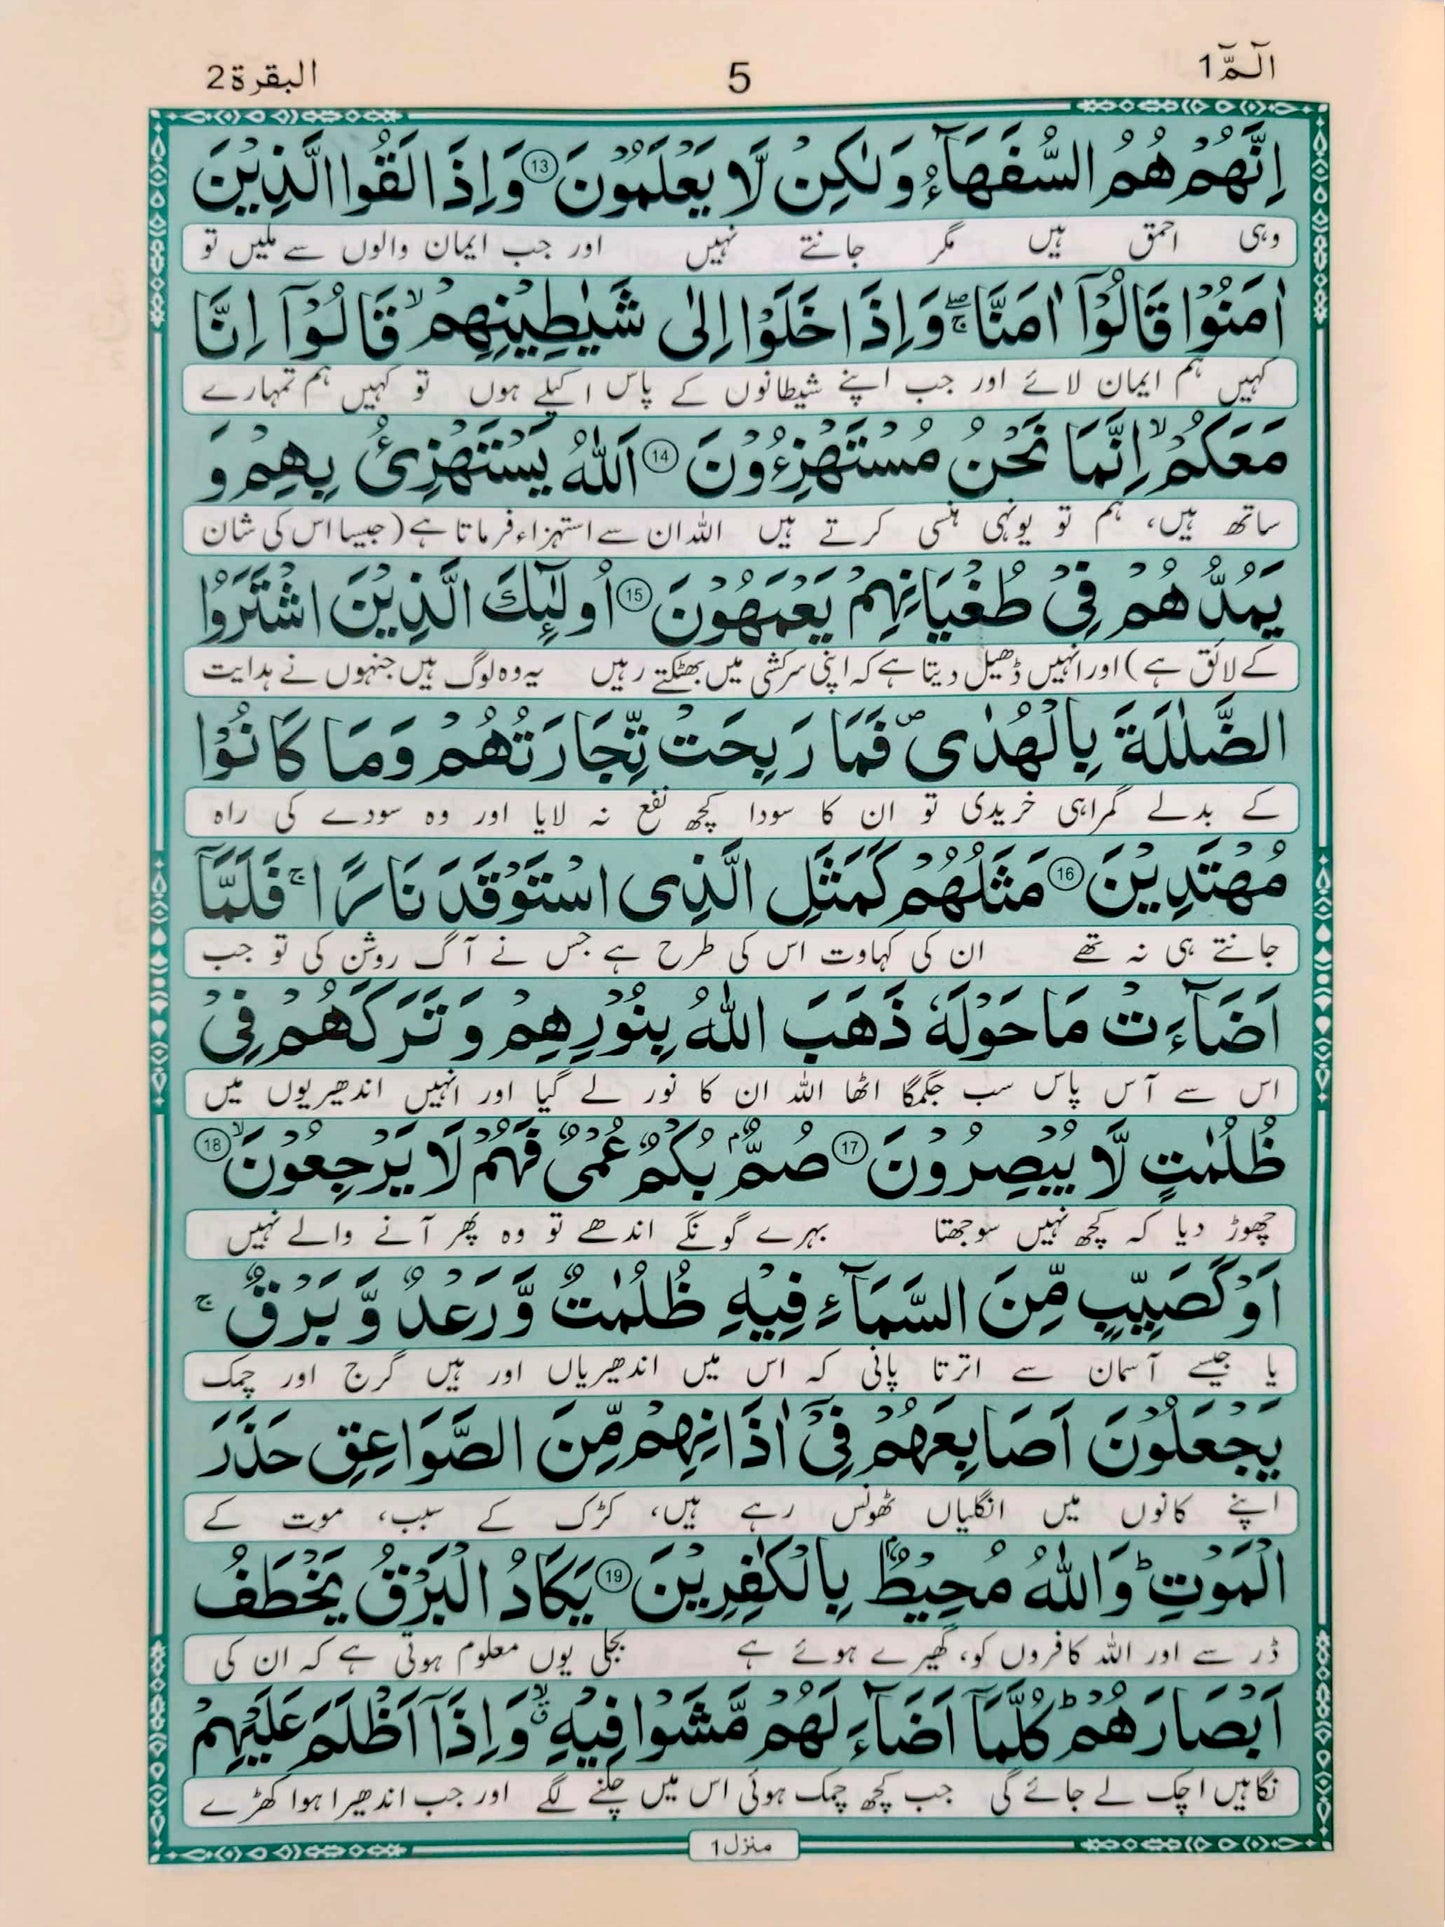 الٓمّٓ 1
5
البقرة 2
اِنَّهُمْ هُمُ السُّفَهَآءُ وَلٰكِنْ لَّا يَعْلَمُوْنَ ⑬ وَاِذَا لَقُوا الَّذِيْنَ
وہی احمق ہیں مگر جانتے نہیں اور جب ایمان والوں سے ملیں تو
اٰمَنُوْا قَالُوْٓا اٰمَنَّا ۖۚ وَاِذَا خَلَوْا اِلٰى شَيٰطِيْنِهِمْ ۙ قَالُوْٓا اِنَّا
کہیں ہم ایمان لائے اور جب اپنے شیطانوں کے پاس اکیلے ہوں تو کہیں ہم تمہارے
مَعَكُمْ ۙ اِنَّمَا نَحْنُ مُسْتَهْزِءُوْنَ ⑭ اَللّٰهُ يَسْتَهْزِئُ بِهِمْ وَ
ساتھ ہیں، ہم تو یونہی ہنسی کرتے ہیں اللہ ان سے استہزاء فرماتا ہے (جیسا اس کی شان
يَمُدُّهُمْ فِيْ طُغْيَانِهِمْ يَعْمَهُوْنَ ⑮ اُولٰٓئِكَ الَّذِيْنَ اشْتَرَوُا
کے لائق ہے) اور انہیں ڈھیل دیتا ہے کہ اپنی سرکشی میں بھٹکتے رہیں یہ وہ لوگ ہیں جنہوں نے ہدایت
الضَّلٰلَةَ بِالْهُدٰى ۪ فَمَا رَبِحَتْ تِّجَارَتُهُمْ وَمَا كَانُوْا
کے بدلے گمراہی خریدی تو ان کا سودا کچھ نفع نہ لایا اور وہ سودے کی راہ
مُهْتَدِيْنَ ⑯ مَثَلُهُمْ كَمَثَلِ الَّذِى اسْتَوْقَدَ نَارًا ۚ فَلَمَّآ
جانتے ہی نہ تھے ان کی کہاوت اس کی طرح ہے جس نے آگ روشن کی تو جب
اَضَآءَتْ مَا حَوْلَهٗ ذَهَبَ اللّٰهُ بِنُوْرِهِمْ وَتَرَكَهُمْ فِيْ
اس سے آس پاس سب جگمگا اٹھا اللہ ان کا نور لے گیا اور انہیں اندھیریوں میں
ظُلُمٰتٍ لَّا يُبْصِرُوْنَ ⑰ صُمٌّۢ بُكْمٌ عُمْىٌ فَهُمْ لَا يَرْجِعُوْنَ ۙ ⑱
چھوڑ دیا کہ کچھ نہیں سوجھتا بہرے گونگے اندھے تو وہ پھر آنے والے نہیں
اَوْ كَصَيِّبٍ مِّنَ السَّمَآءِ فِيْهِ ظُلُمٰتٌ وَّرَعْدٌ وَّبَرْقٌ ۚ
یا جیسے آسمان سے اترتا پانی کہ اس میں اندھیریاں اور ہیں گرج اور چمک
يَجْعَلُوْنَ اَصَابِعَهُمْ فِيْٓ اٰذَانِهِمْ مِّنَ الصَّوَاعِقِ حَذَرَ
اپنے کانوں میں انگلیاں ٹھونس رہے ہیں، کڑک کے سبب، موت کے
الْمَوْتِ ؕ وَاللّٰهُ مُحِيْطٌۢ بِالْكٰفِرِيْنَ ⑲ يَكَادُ الْبَرْقُ يَخْطَفُ
ڈر سے اور اللہ کافروں کو، گھیرے ہوئے ہے بجلی یوں معلوم ہوتی ہے کہ ان کی
اَبْصَارَهُمْ ؕ كُلَّمَآ اَضَآءَ لَهُمْ مَّشَوْا فِيْهِ ۙۗ وَاِذَآ اَظْلَمَ عَلَيْهِمْ
نگاہیں اچک لے جائے گی جب کچھ چمک ہوئی اس میں چلنے لگے اور جب اندھیرا ہوا کھڑے
منزل 1